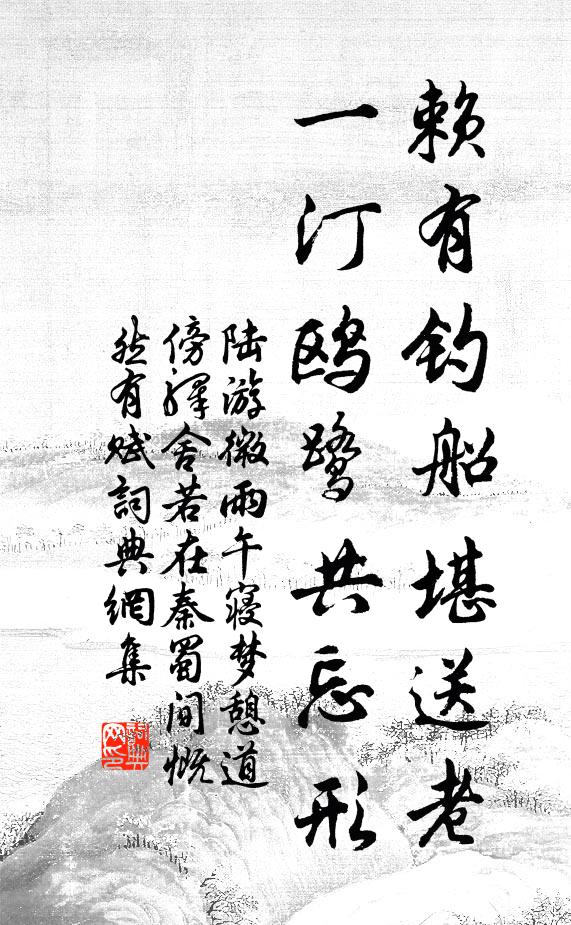 赖有钓船堪送老
一汀鸥鹭共忘形
陆游微雨午寝梦憩道
傍驿舍若在秦蜀间慨
然有赋词典网集